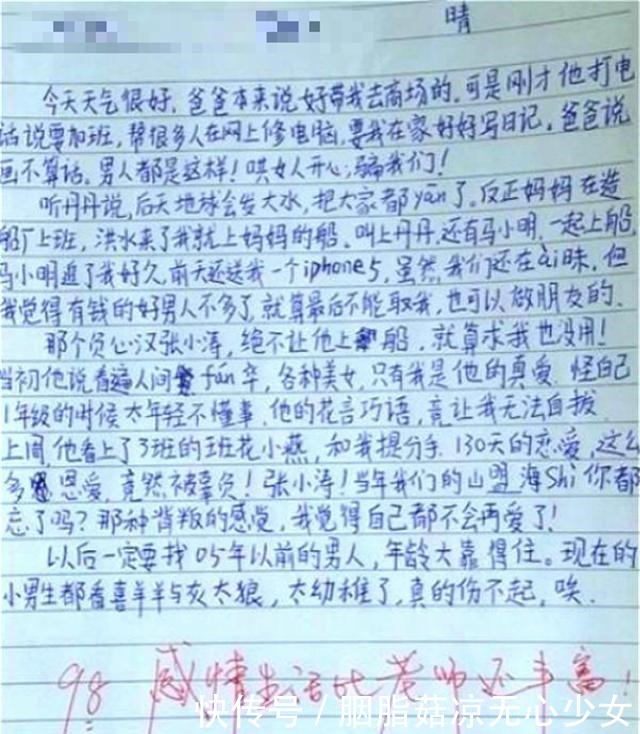 晴
今天天气很好，爸爸本来说好带我去商场的，可是刚才他打电
话说要加班，帮很多人在网上修电脑，要我在家好好写日记。爸爸说
画不算话。男人都是这样！哄女人开心，骗我们！
听丹丹说，后天地球会发大水，把大家都yān了。反正妈妈在造
船厂上班，洪水来了我就上妈妈的船，叫上丹丹，还有马小明，一起上船，
马小明追了我好久，前天还送我一个iphone5，虽然我们还在ài昧，但
我觉得有钱的好男人不多了，就算最后不能取我，也可以做朋友的。
那个负心汉张小涛，绝不让他上船，就算求我也没用！
当初他说看遍人间fán华，各种美女，只有我是他的真爱，怪自己
1年级的时候太年轻不懂事，他的花言巧语，竟让我无法自拔
上周，他看上了3班的班花小燕，和我提分手，130天的恋爱，这么
多恩爱，竟然被辜负！张小涛！当年我们的山盟海Shi你都
忘了吗？那种背叛的感觉，我觉得自己都不会再爱了！
以后一定要找05年以前的男人，年龄大靠得住。现在的
小男生都看喜羊羊与灰太狼，太幼稚了，真的伤不起，唉．
98 感情生活比老师还丰富！
快传号／胭脂菇凉无心少女